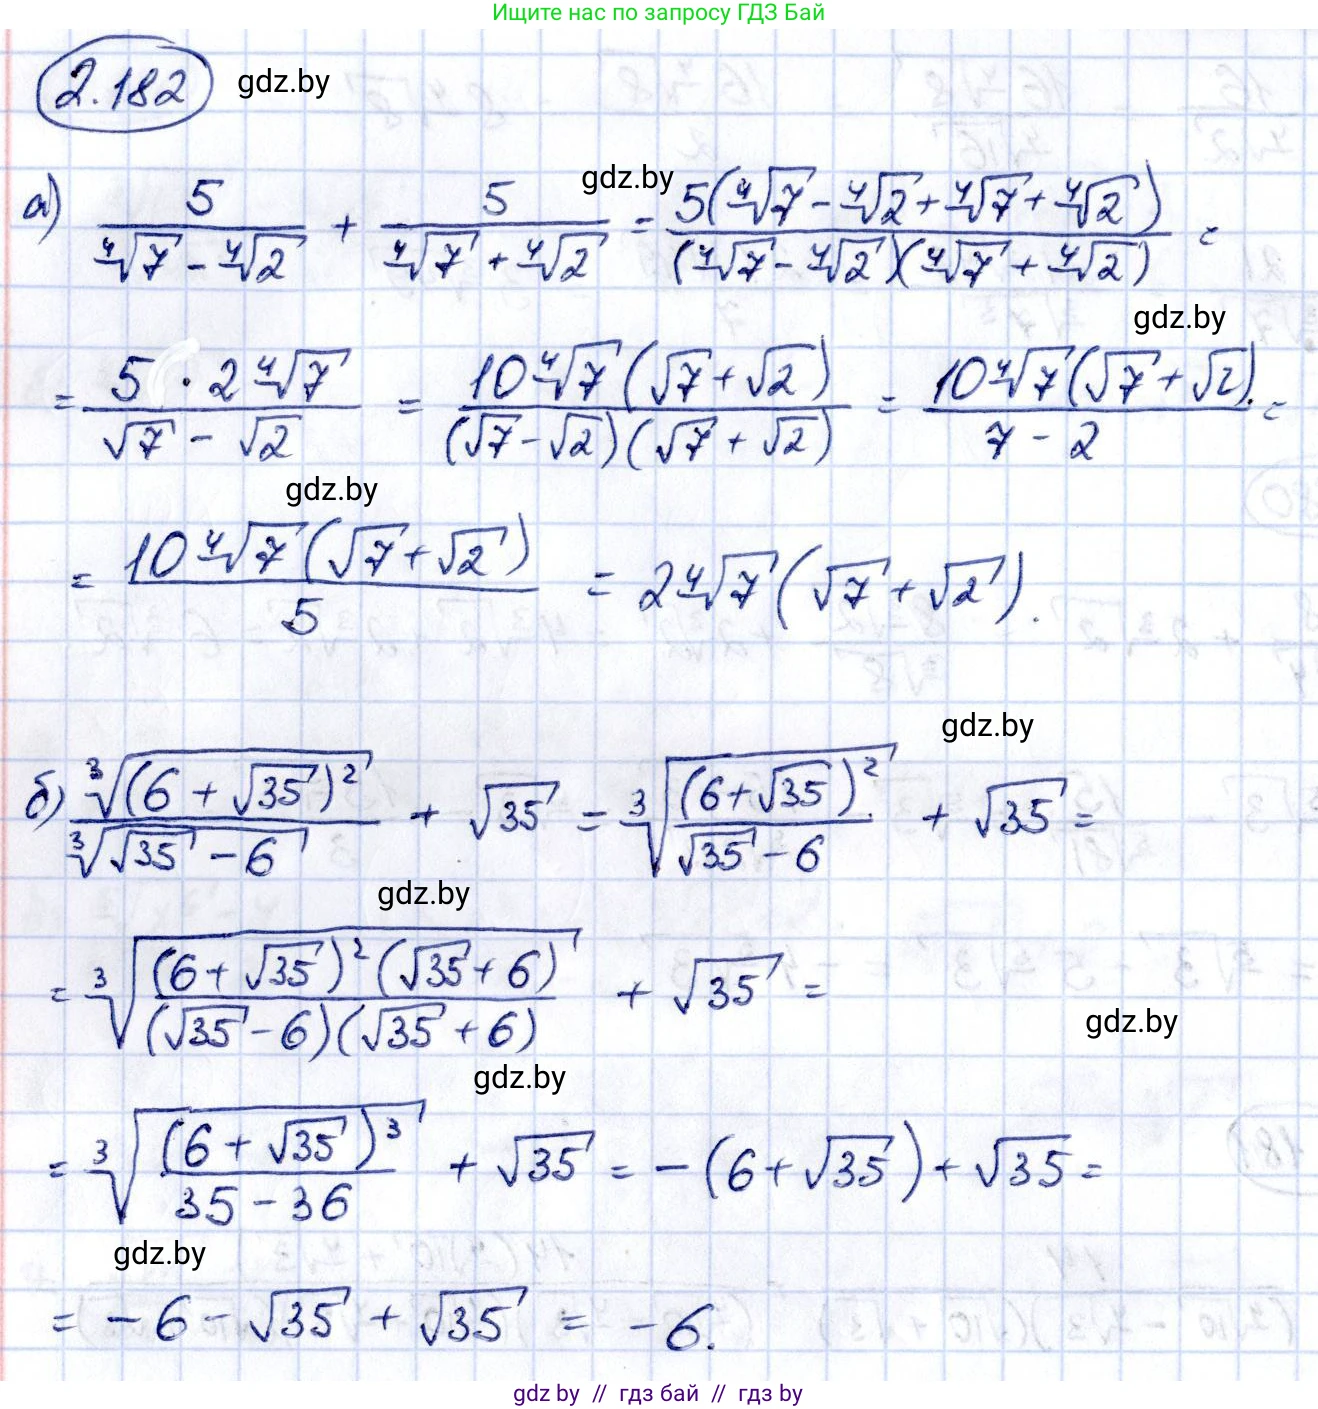 Ищите нас по запросу ГДЗ Бай
2.182 gdz.by
gdz.by
а) 5/(⁴√7 - ⁴√2) + 5/(⁴√7 + ⁴√2) = 5(⁴√7 - ⁴√2 + ⁴√7 + ⁴√2)/((⁴√7 - ⁴√2)(⁴√7 + ⁴√2)) =
gdz.by
= 5 · 2⁴√7/(√7 - √2) = 10⁴√7(√7 + √2)/((√7 - √2)(√7 + √2)) = 10⁴√7(√7 + √2)/(7 - 2) =
gdz.by
= 10⁴√7(√7 + √2)/5 = 2⁴√7(√7 + √2).
gdz.by
б) ³√((6 + √35)²)/³√(√35 - 6) + √35 = ³√((6 + √35)²/(√35 - 6)) + √35 =
gdz.by
= ³√((6 + √35)²(√35 + 6)/((√35 - 6)(√35 + 6))) + √35 =
gdz.by
gdz.by
= ³√((6 + √35)³/(35 - 36)) + √35 = -(6 + √35) + √35 =
gdz.by
= -6 - √35 + √35 = -6.
gdz by // гдз бай // gdz by